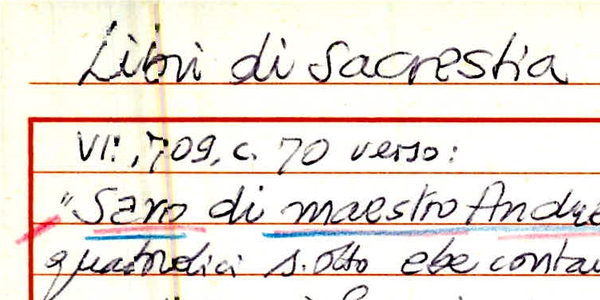 Libri di Sacrestia
VI:,709, c. 70 verso:
"Saro di maestro Andre
quatordici s. otto ebe contan